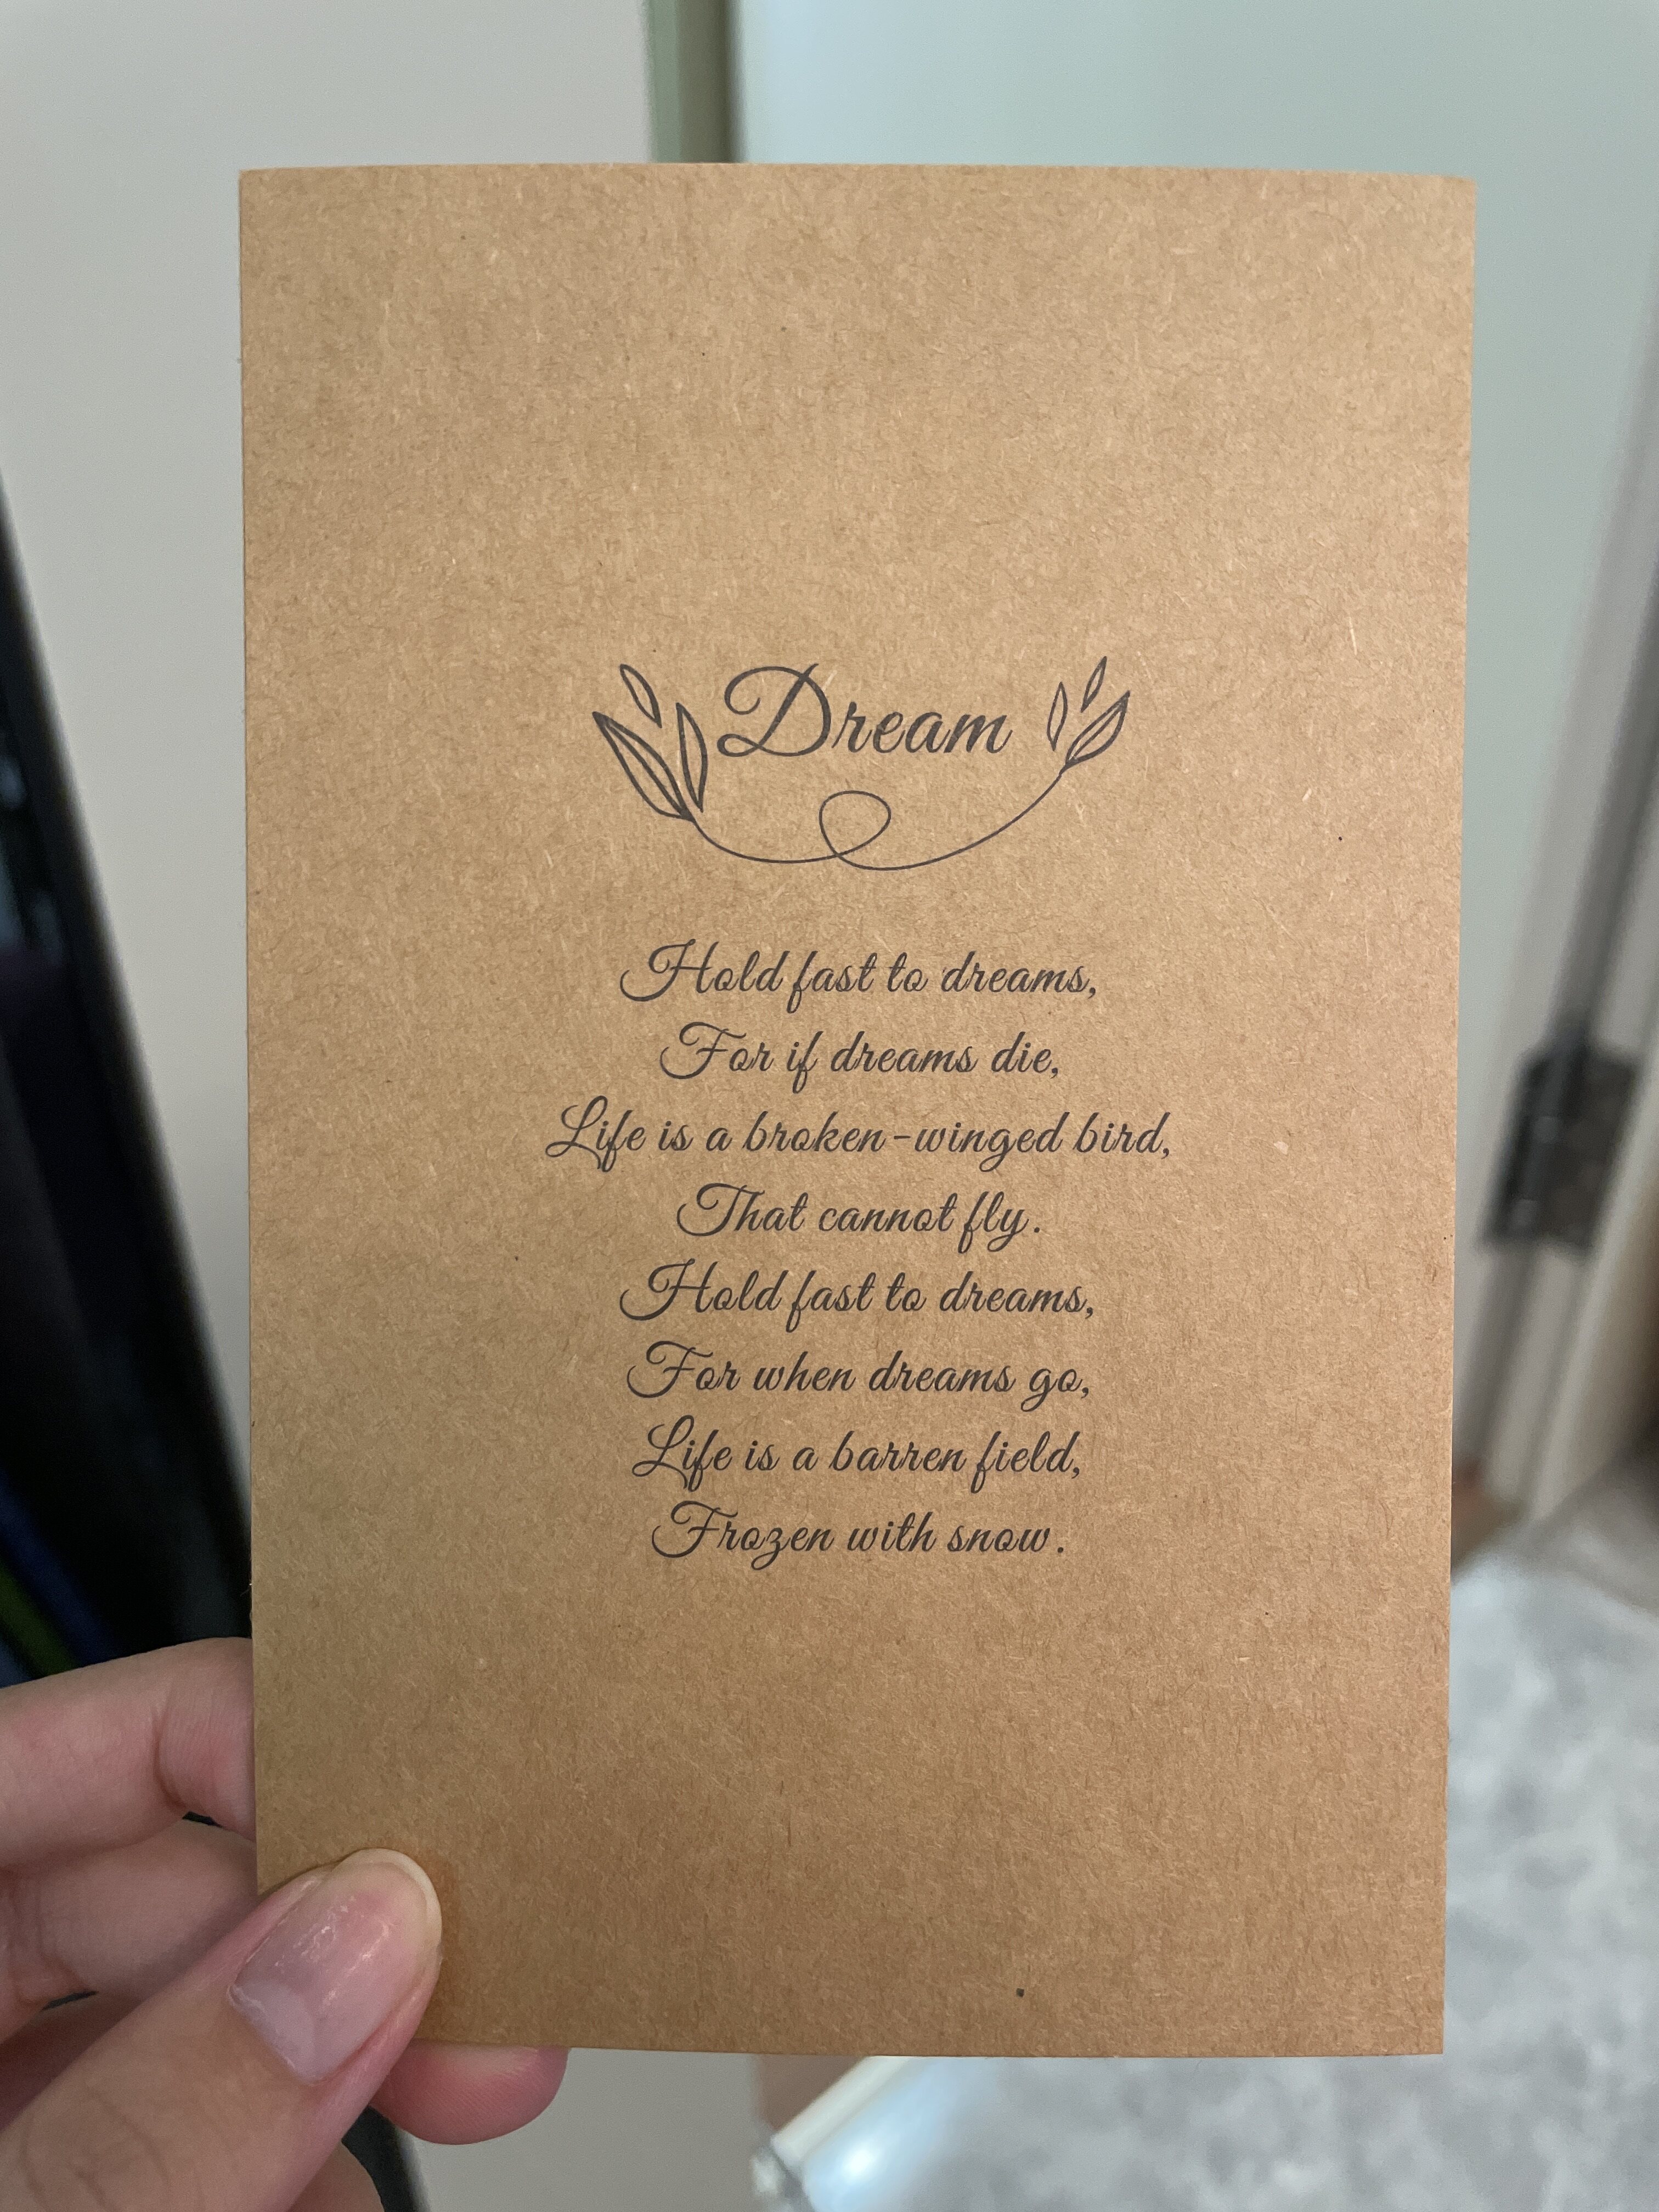 Dream
Hold fast to dreams,
For if dreams die,
Life is a broken-winged bird,
That cannot fly.
Hold fast to dreams,
For when dreams go,
Life is a barren field,
Frozen with snow.